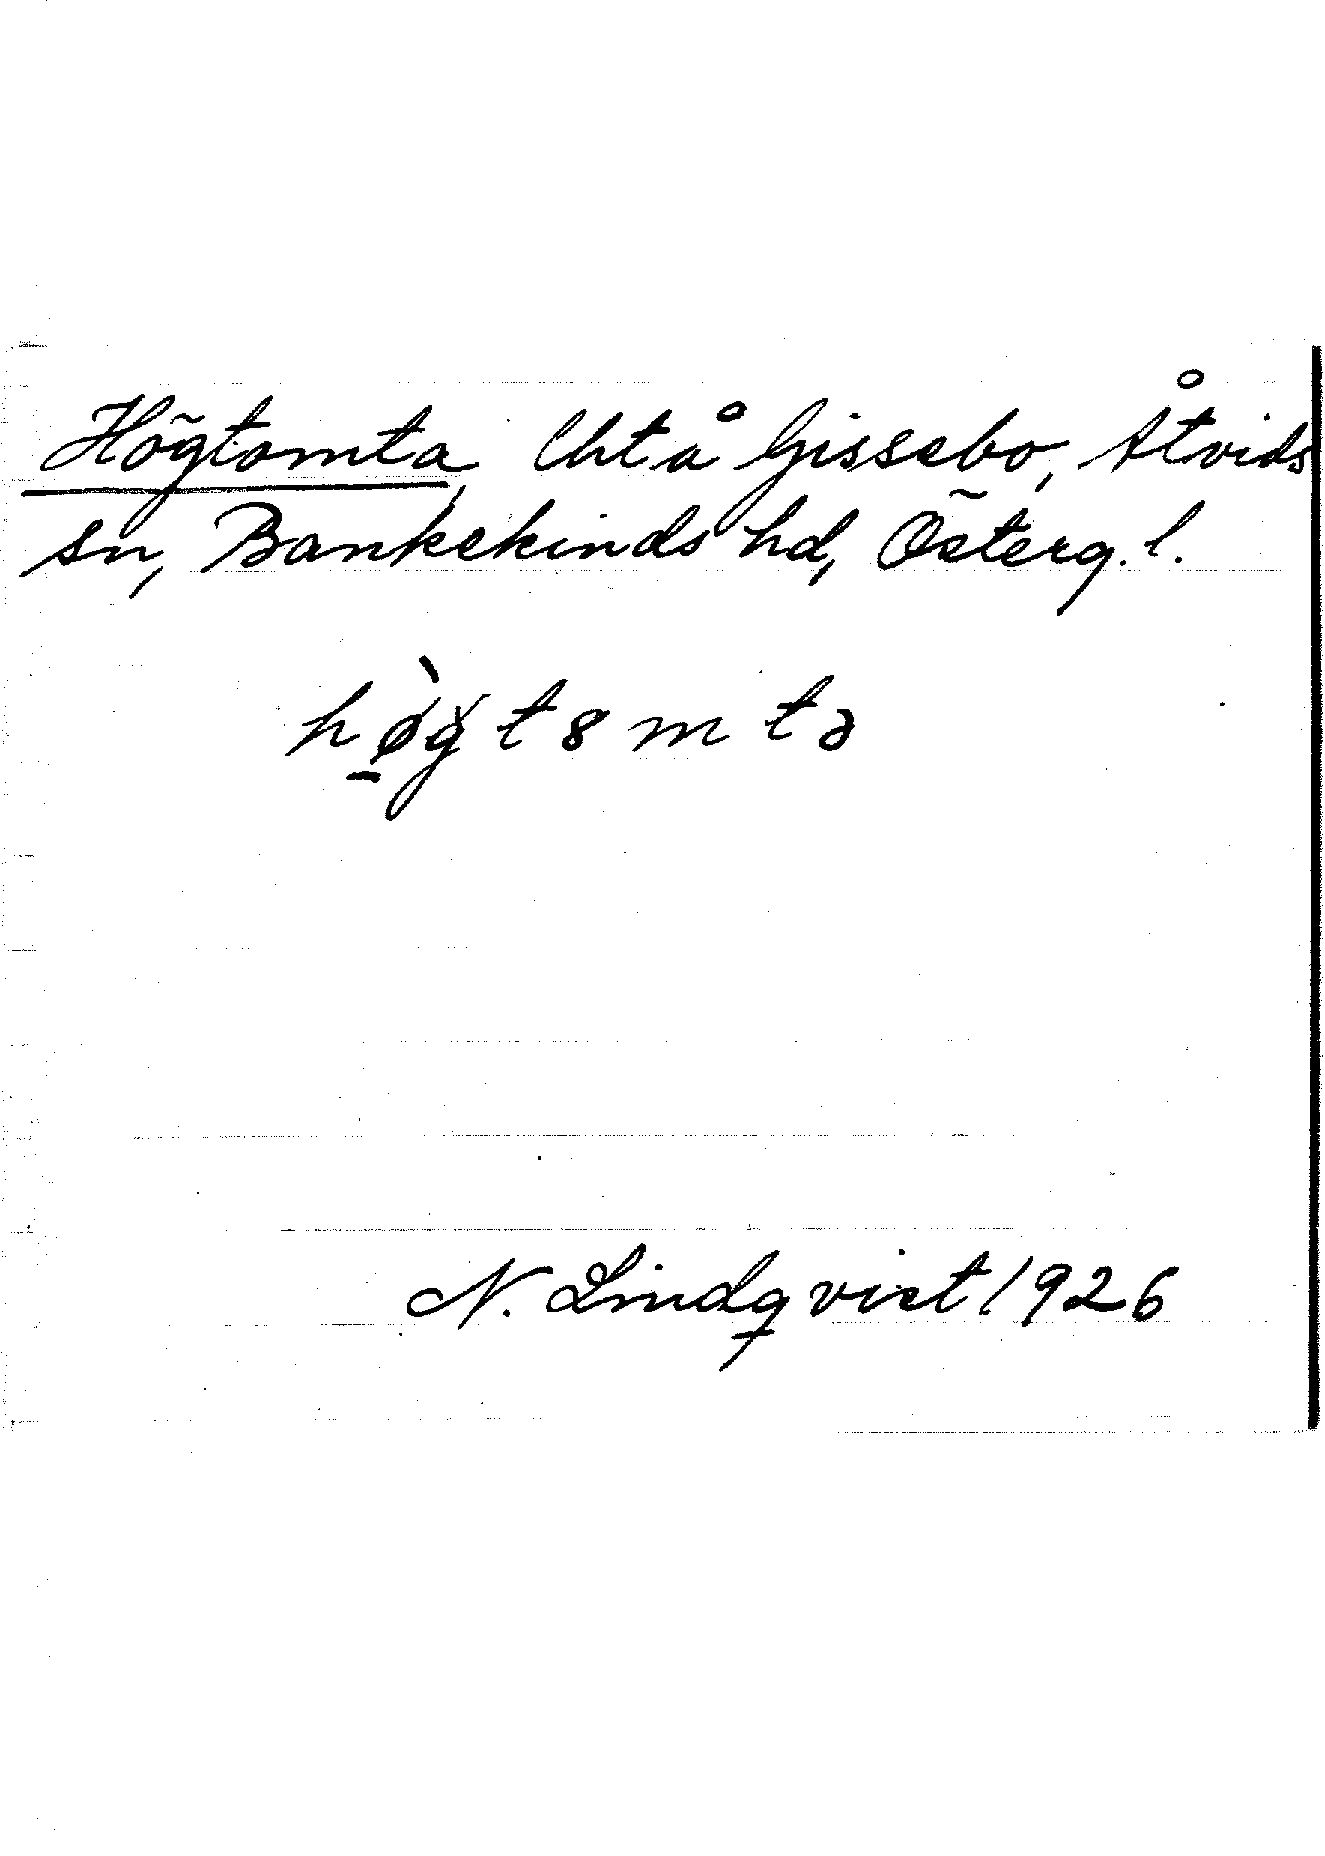 Högtomta, lht å Gissebo, Åtvids
sn, Bankekinds hd, Österg. l.
hø̀gtȣmtə
N. Lindqvist 1926